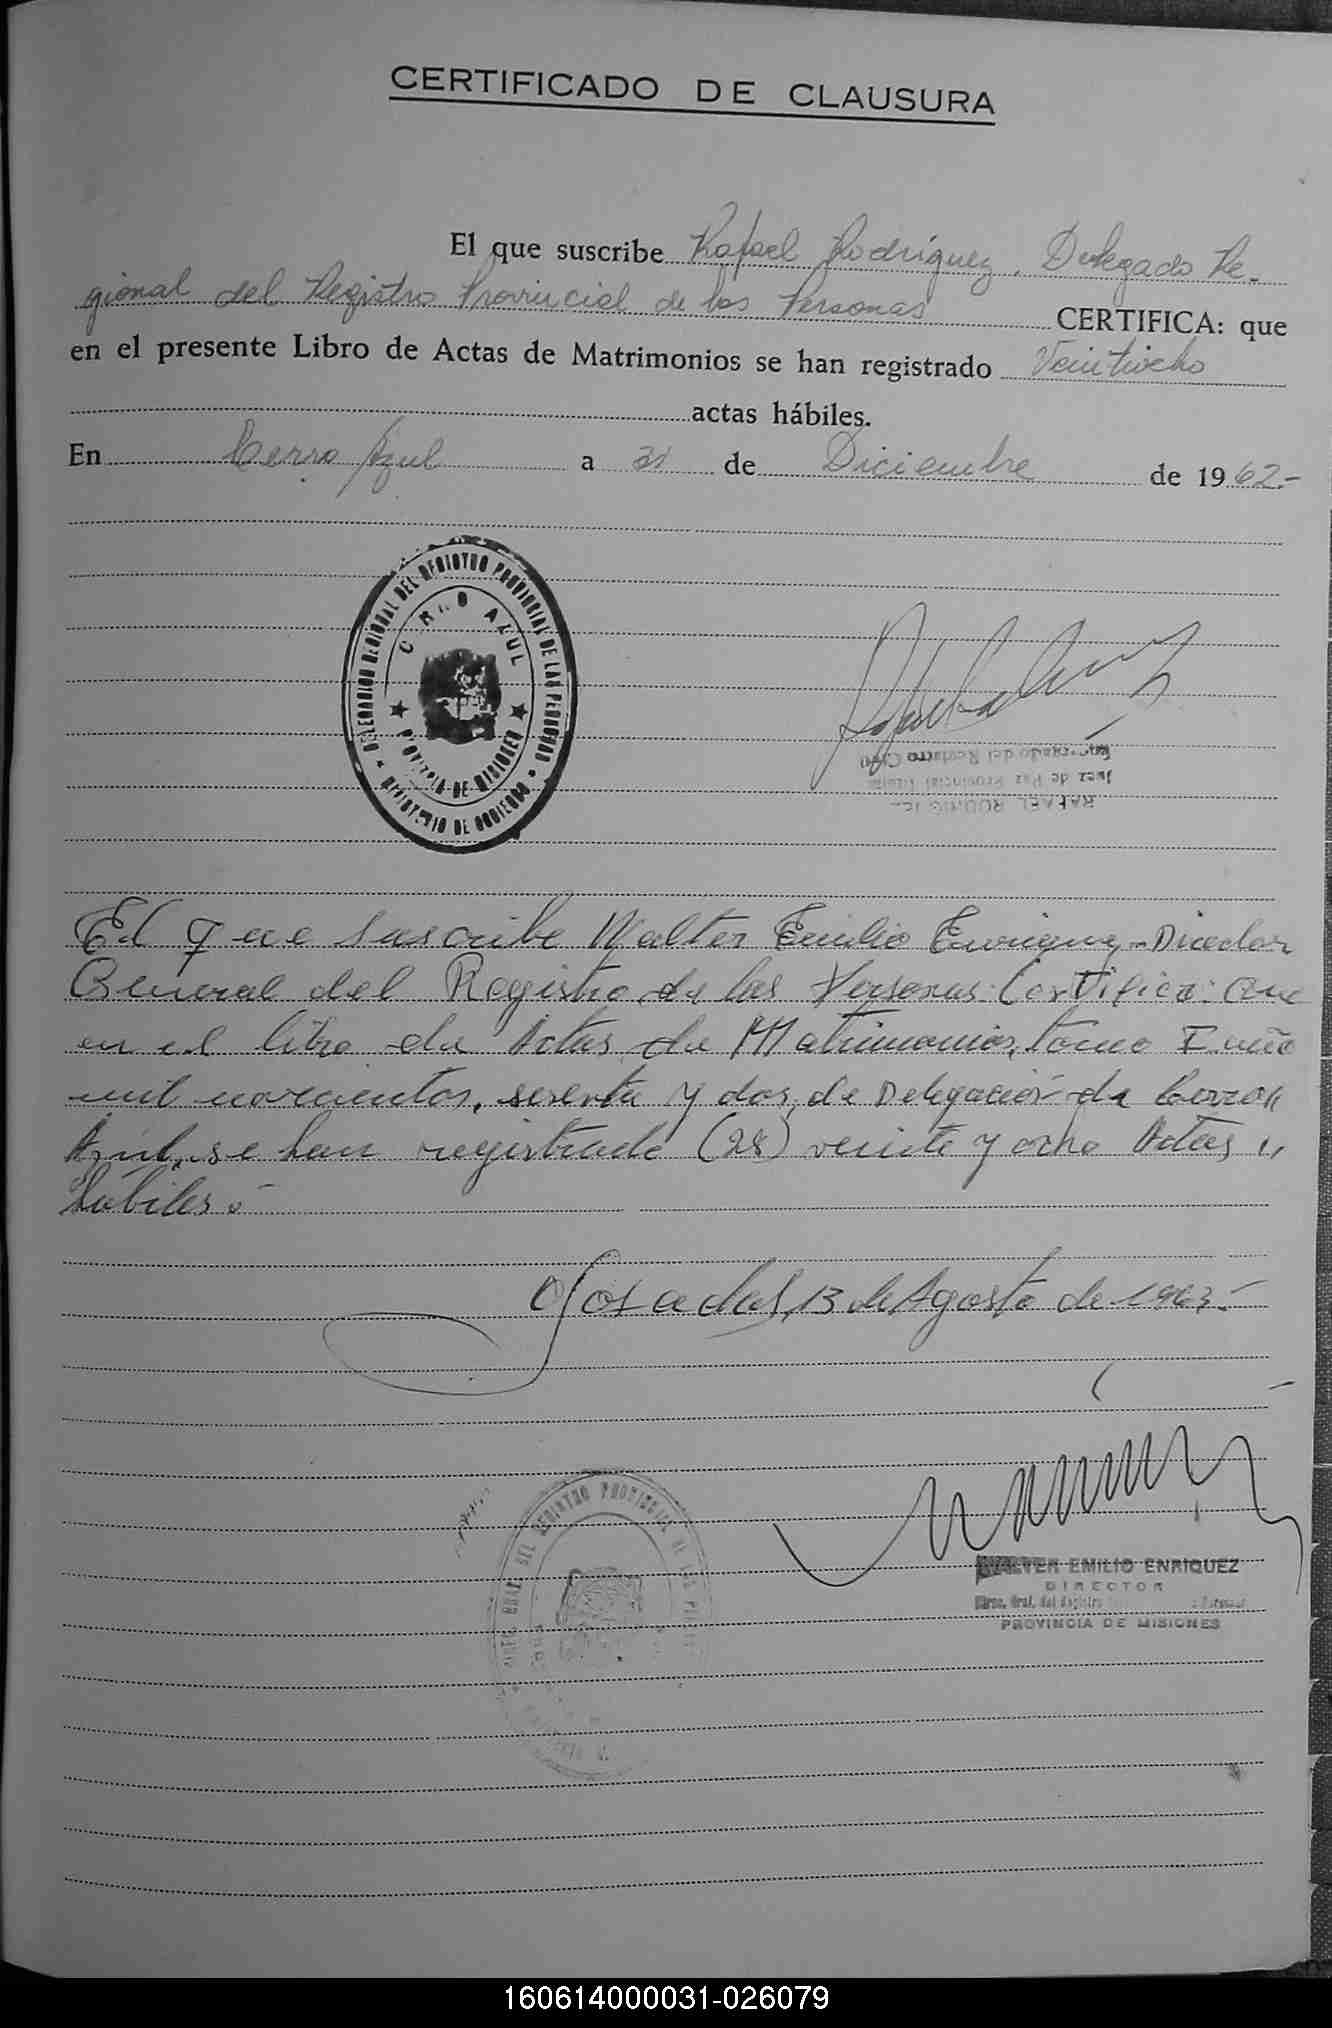 CERTIFICADO DE CLAUSURA
El que suscribe Rafael Rodríguez, Delegado Re-
gional del Registro Provincial de las Personas CERTIFICA: que
en el presente Libro de Actas de Matrimonios se han registrado Veintiocho
actas hábiles.
En Cerro Azul a 31 de Diciembre de 1962.-
DELEGACION REGIONAL DEL REGISTRO PROVINCIAL DE LAS PERSONAS
CERRO AZUL
PROVINCIA DE MISIONES
MINISTERIO DE GOBIERNO
Encargado del Registro Civil
Juez de Paz Provincial Titular
RAFAEL RODRIGUEZ
El que suscribe Walter Emilio Enriquez - Director
General del Registro de las Personas: Certifica: Que
en el libro de Actas de Matrimonios, tomo I año
mil novecientos, sesenta y dos, de Delegación de Cerro
Azul, se han registrado (28) veinte y ocho Actas
hábiles.-
Posadas, 13 de Agosto de 1963.-
GRAL DEL REGISTRO PROVINCIAL DE LAS
WALTER EMILIO ENRIQUEZ
DIRECTOR
Direc. Gral. del Registro
PROVINCIA DE MISIONES
160614000031-026079